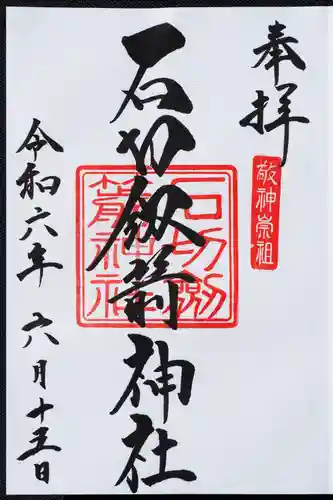 奉拝
敬神崇祖
石切劔箭神社
石切劔
箭神社
令和六年 六月十五日